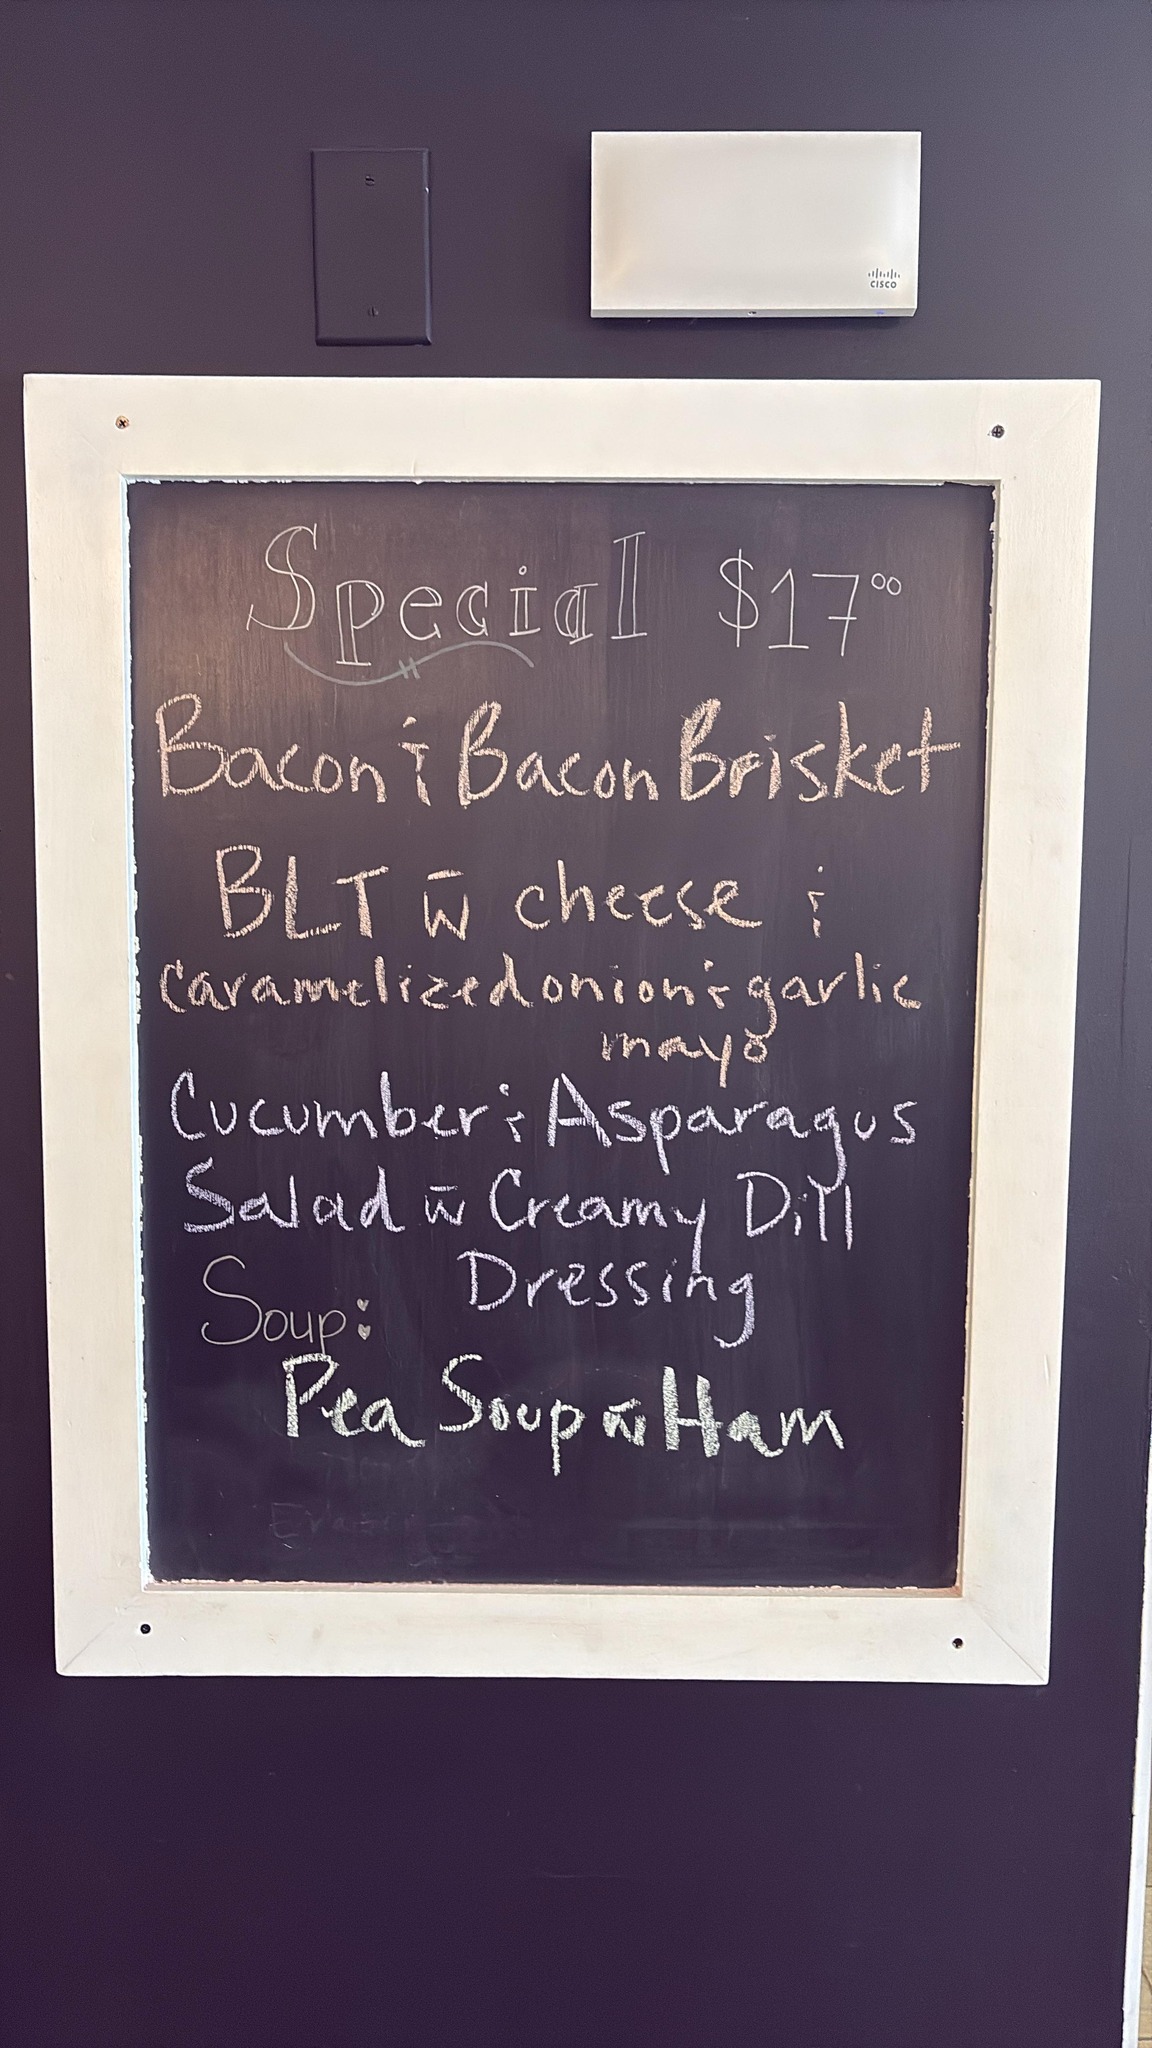 CISCO
Special $17⁰⁰
Bacon & Bacon Brisket
BLT w̄ cheese &
caramelized onion & garlic
mayo
Cucumber & Asparagus
Salad w̄ Creamy Dill
Dressing
Soup:
Pea Soup w̄ Ham